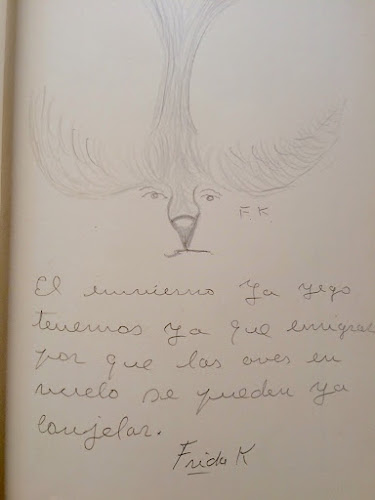 F. K.
El invierno ya yego
tenemos ya que emigrar
por que las aves en
vuelo se pueden ya
conjelar.
Frida K